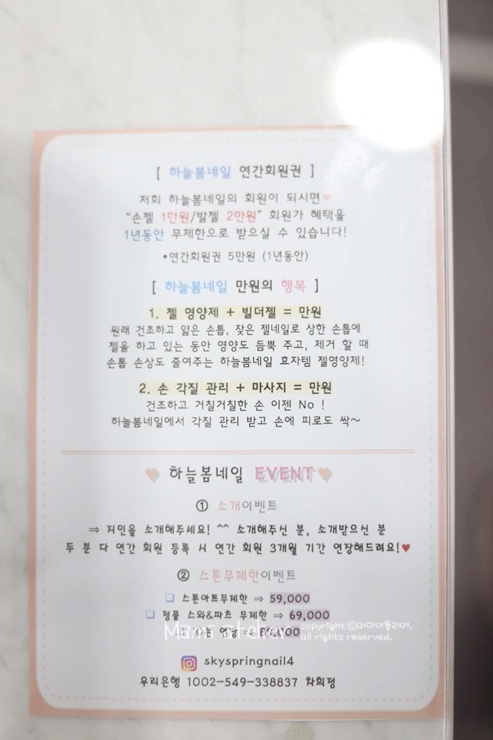 [ 하늘봄네일 연간회원권 ]
저희 하늘봄네일의 회원이 되시면♥
"손젤 1만원/발젤 2만원" 회원가 혜택을
1년동안 무제한으로 받으실 수 있습니다!
*연간회원권 5만원 (1년동안)
[ 하늘봄네일 만원의 행복 ]
1. 젤 영양제 + 빌더젤 = 만원
원래 건조하고 얇은 손톱, 잦은 젤네일로 상한 손톱에
젤을 하고 있는 동안 영양도 듬뿍 주고, 제거 할 때
손톱 손상도 줄여주는 하늘봄네일 효자템 젤영양제!
2. 손 각질 관리 + 마사지 = 만원
건조하고 거칠거칠한 손 이젠 No !
하늘봄네일에서 각질 관리 받고 손에 피로도 싹~
♥ 하늘봄네일 EVENT ♥
① 소개이벤트
⇒ 지인을 소개해주세요! ^^ 소개해주신 분, 소개받으신 분
두 분 다 연간 회원 등록 시 연간 회원 3개월 기간 연장해드려요!♥
② 스톤무제한이벤트
❏ 스톤아트무제한 ⇒ 59,000
❏ 정품 스와&파츠 무제한 ⇒ 69,000
copyright ⓒ마미아뜰리어,
all rights reserved.
skyspringnail4
우리은행 1002-549-338837 차희정